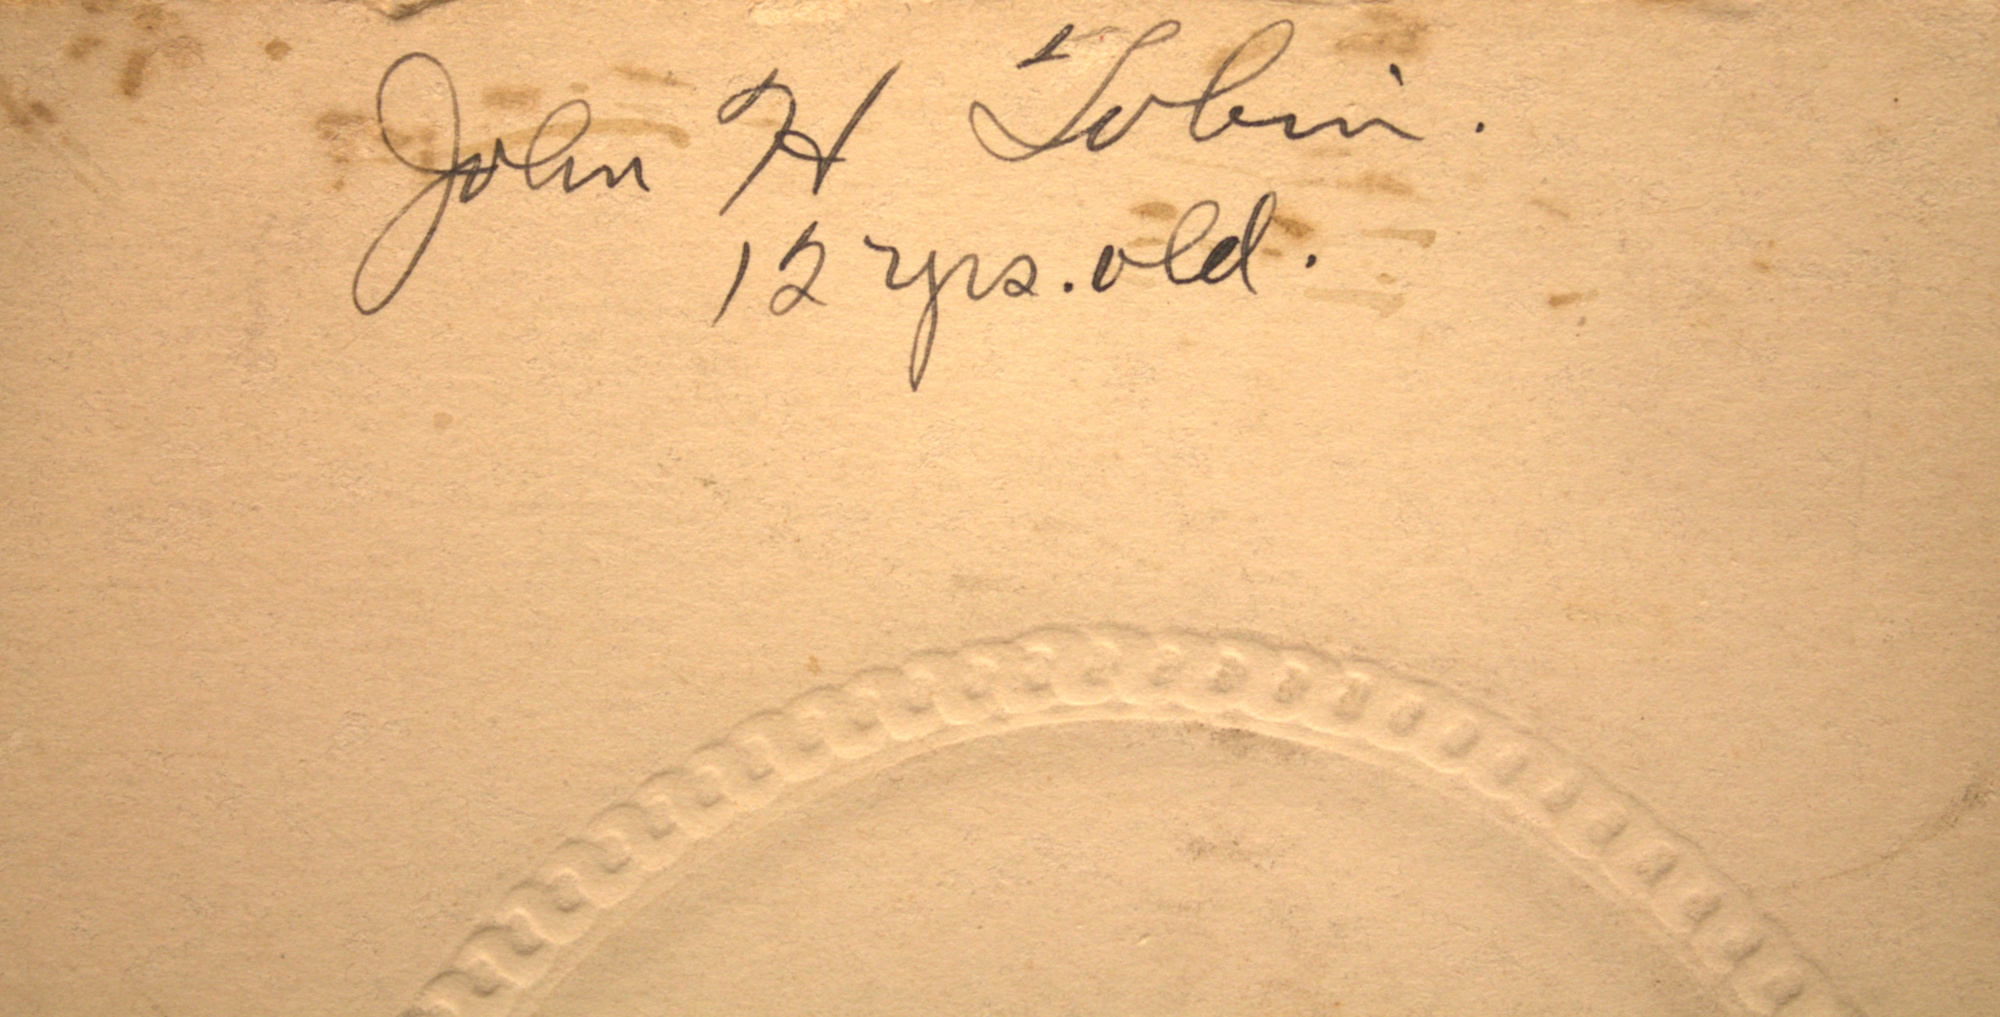 John H Tobin.
12 yrs. old.